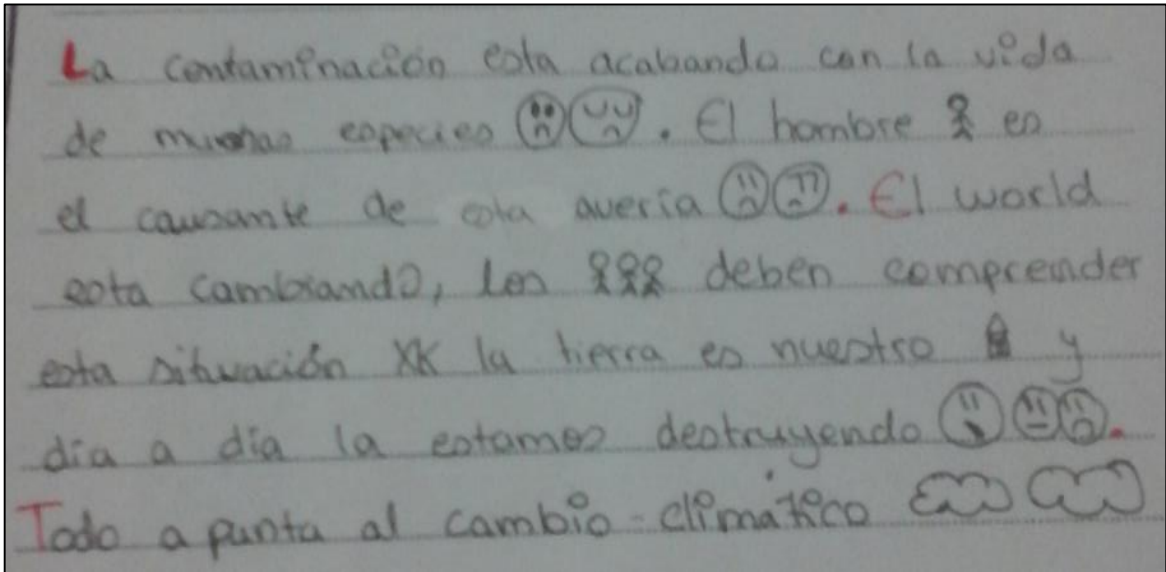 La contaminación esta acabando con la vida
de muchas especies. El hombre es
el causante de esta avería. El world
esta cambiando, los deben comprender
esta situación XK la tierra es nuestro y
día a día la estamos destruyendo.
Todo a punta al cambio-climático